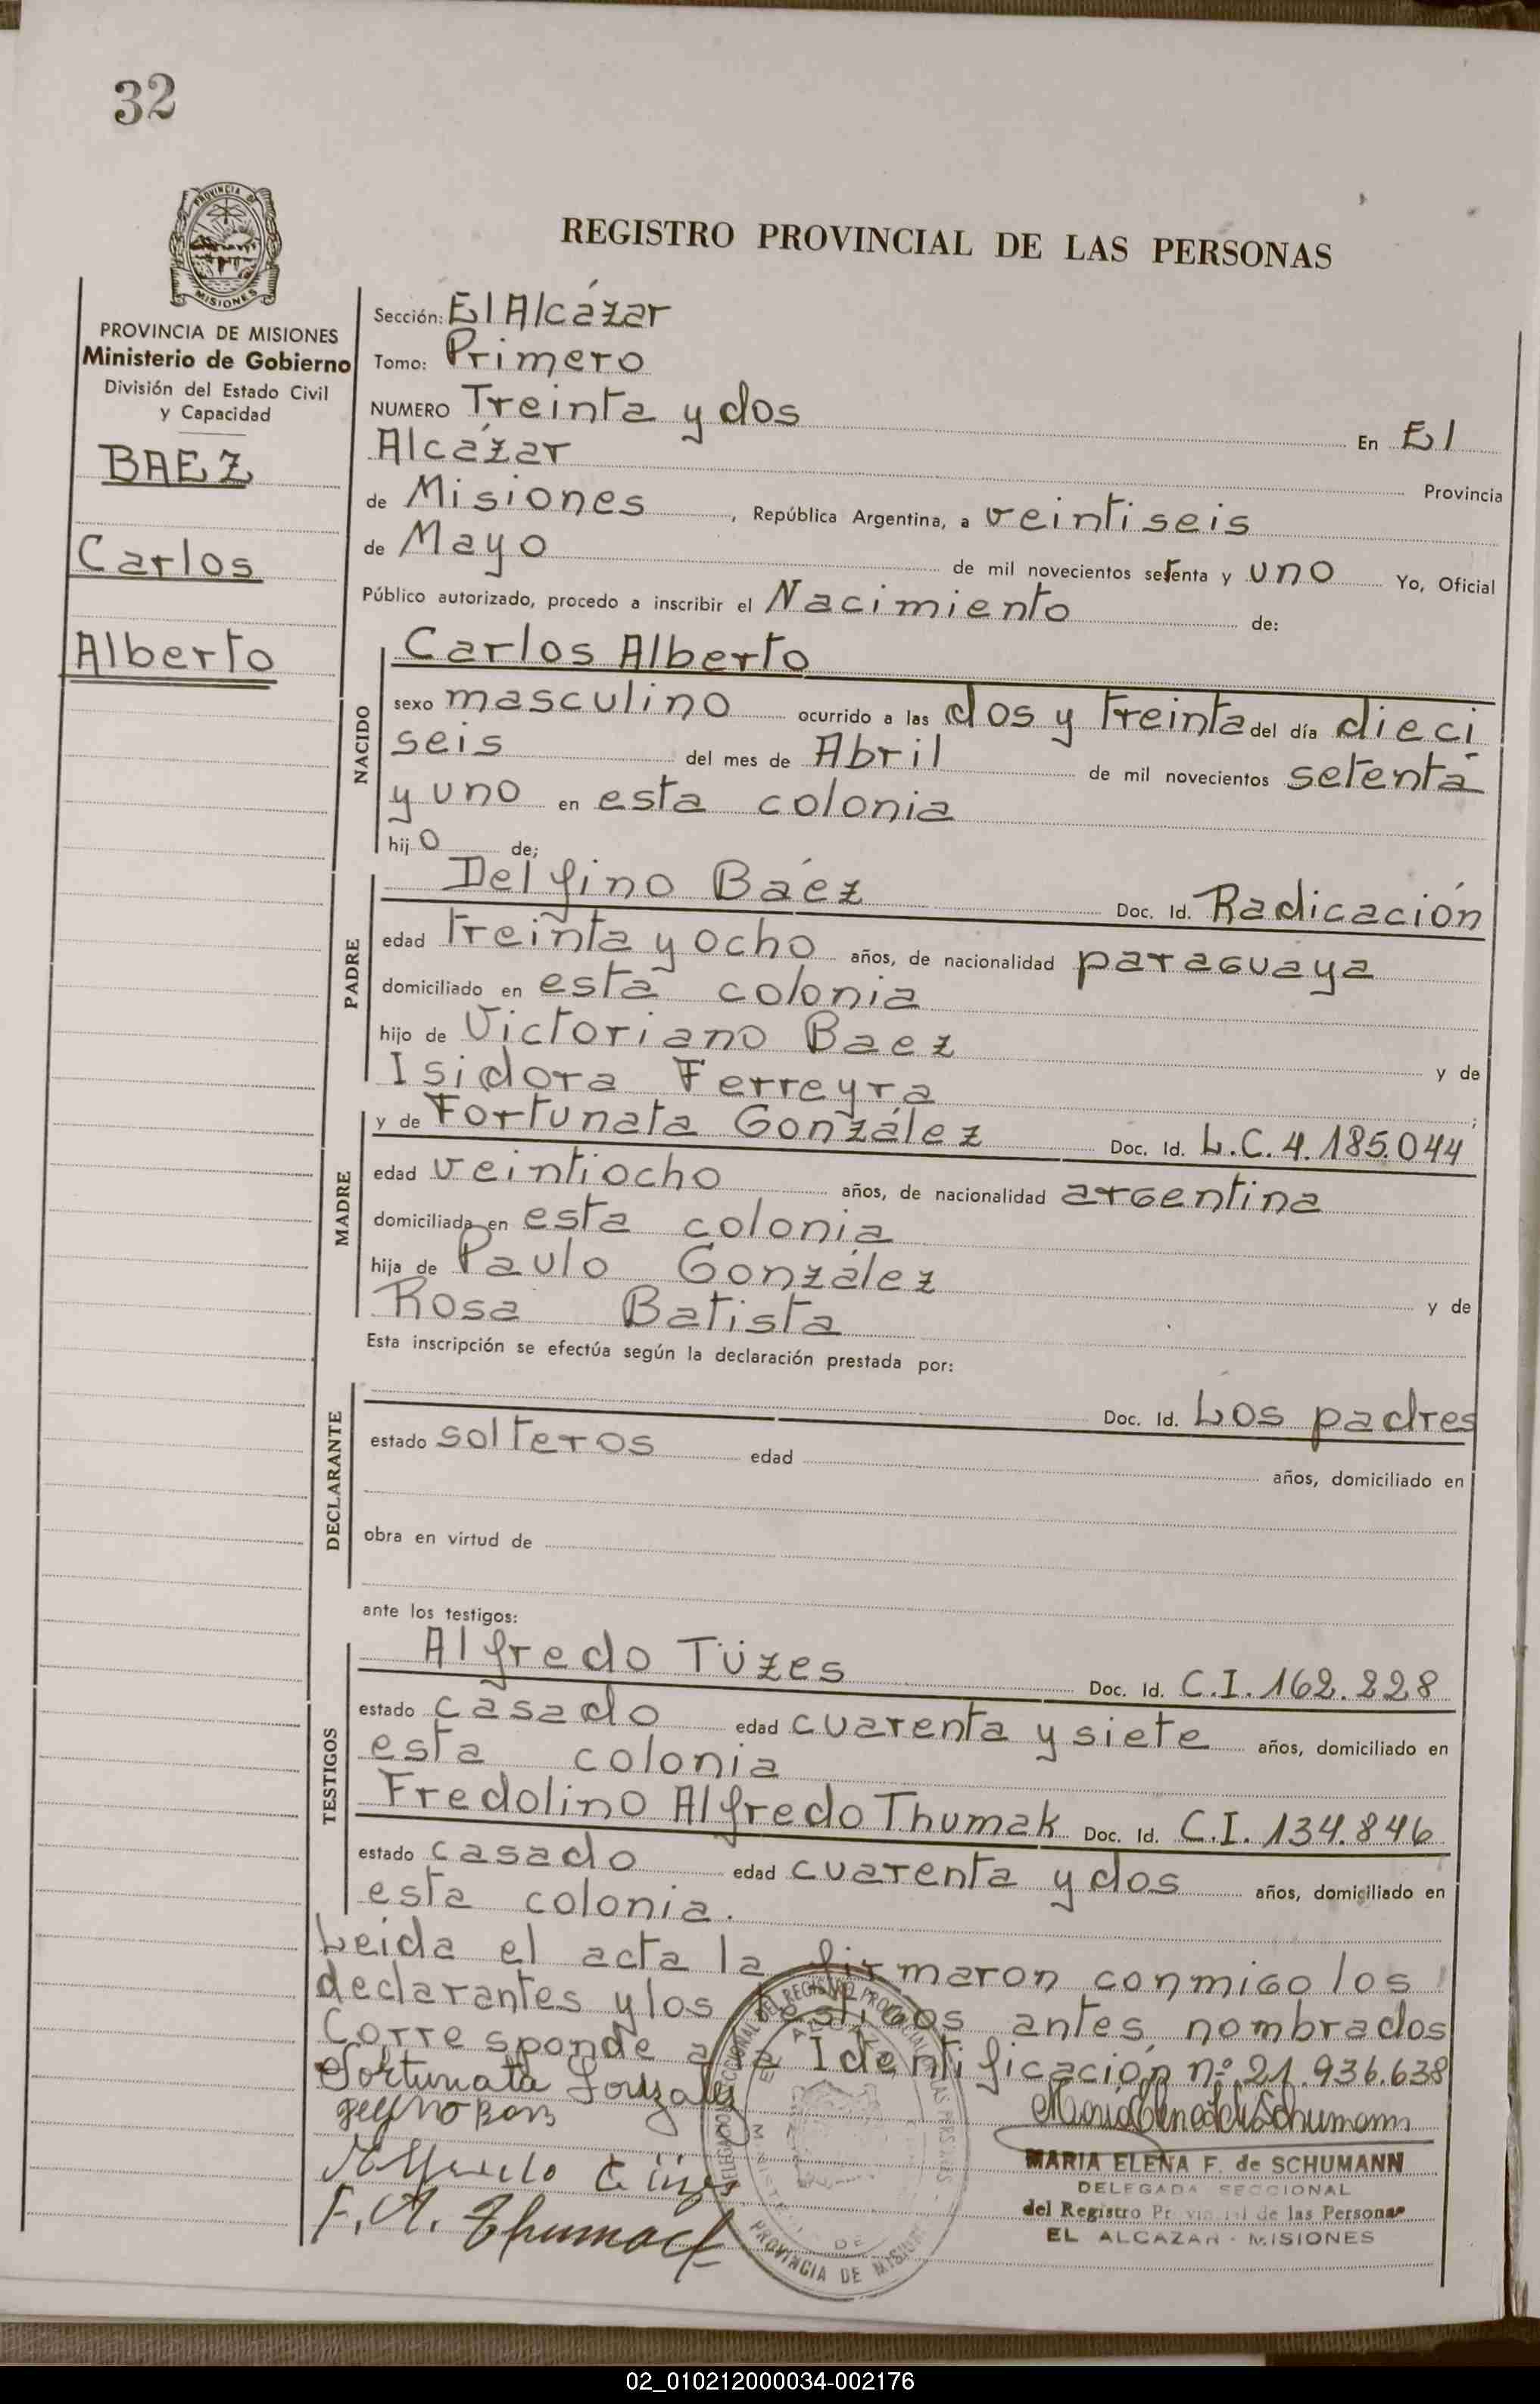 32
PROVINCIA DE
MISIONES
PROVINCIA DE MISIONES
Ministerio de Gobierno
División del Estado Civil
y Capacidad
BAEZ
Carlos
Alberto
REGISTRO PROVINCIAL DE LAS PERSONAS
Sección: El Alcázar
Tomo: Primero
NUMERO Treinta y dos En El
Alcázar Provincia
de Misiones, República Argentina, a veintiseis
de Mayo de mil novecientos setenta y uno Yo, Oficial
Público autorizado, procedo a inscribir el Nacimiento de:
NACIDO
Carlos Alberto
sexo masculino ocurrido a las dos y treinta del día dieci
seis del mes de Abril de mil novecientos setenta
y uno en esta colonia
hijo de;
PADRE
Delfino Báez Doc. Id. Radicación
edad treinta y ocho años, de nacionalidad paraguaya
domiciliado en esta colonia
hijo de Victoriano Baez y de
Isidora Ferreyra ;
MADRE
y de Fortunata González Doc. Id. L.C. 4.185.044
edad veintiocho años, de nacionalidad argentina
domiciliada en esta colonia
hija de Paulo González y de
Rosa Batista
Esta inscripción se efectúa según la declaración prestada por:
DECLARANTE
Doc. Id. Los padres
estado solteros edad años, domiciliado en
obra en virtud de
ante los testigos:
TESTIGOS
Alfredo Tüzes Doc. Id. C.I. 162.228
estado casado edad cuarenta y siete años, domiciliado en
esta colonia
Fredolino Alfredo Thumak Doc. Id. C.I. 134.846
estado casado edad cuarenta y dos años, domiciliado en
esta colonia.
Leida el acta la firmaron conmigo los
declarantes y los testigos antes nombrados
Corresponde a la Identificación nº 21.936.638
Fortunata Gonzalez
F. A. Thumack
MARIA ELENA F. de SCHUMANN
DELEGADA SECCIONAL
del Registro Provincial de las Personas
EL ALCAZAR - MISIONES
PROVINCIA DE MISIONES
02_010212000034-002176